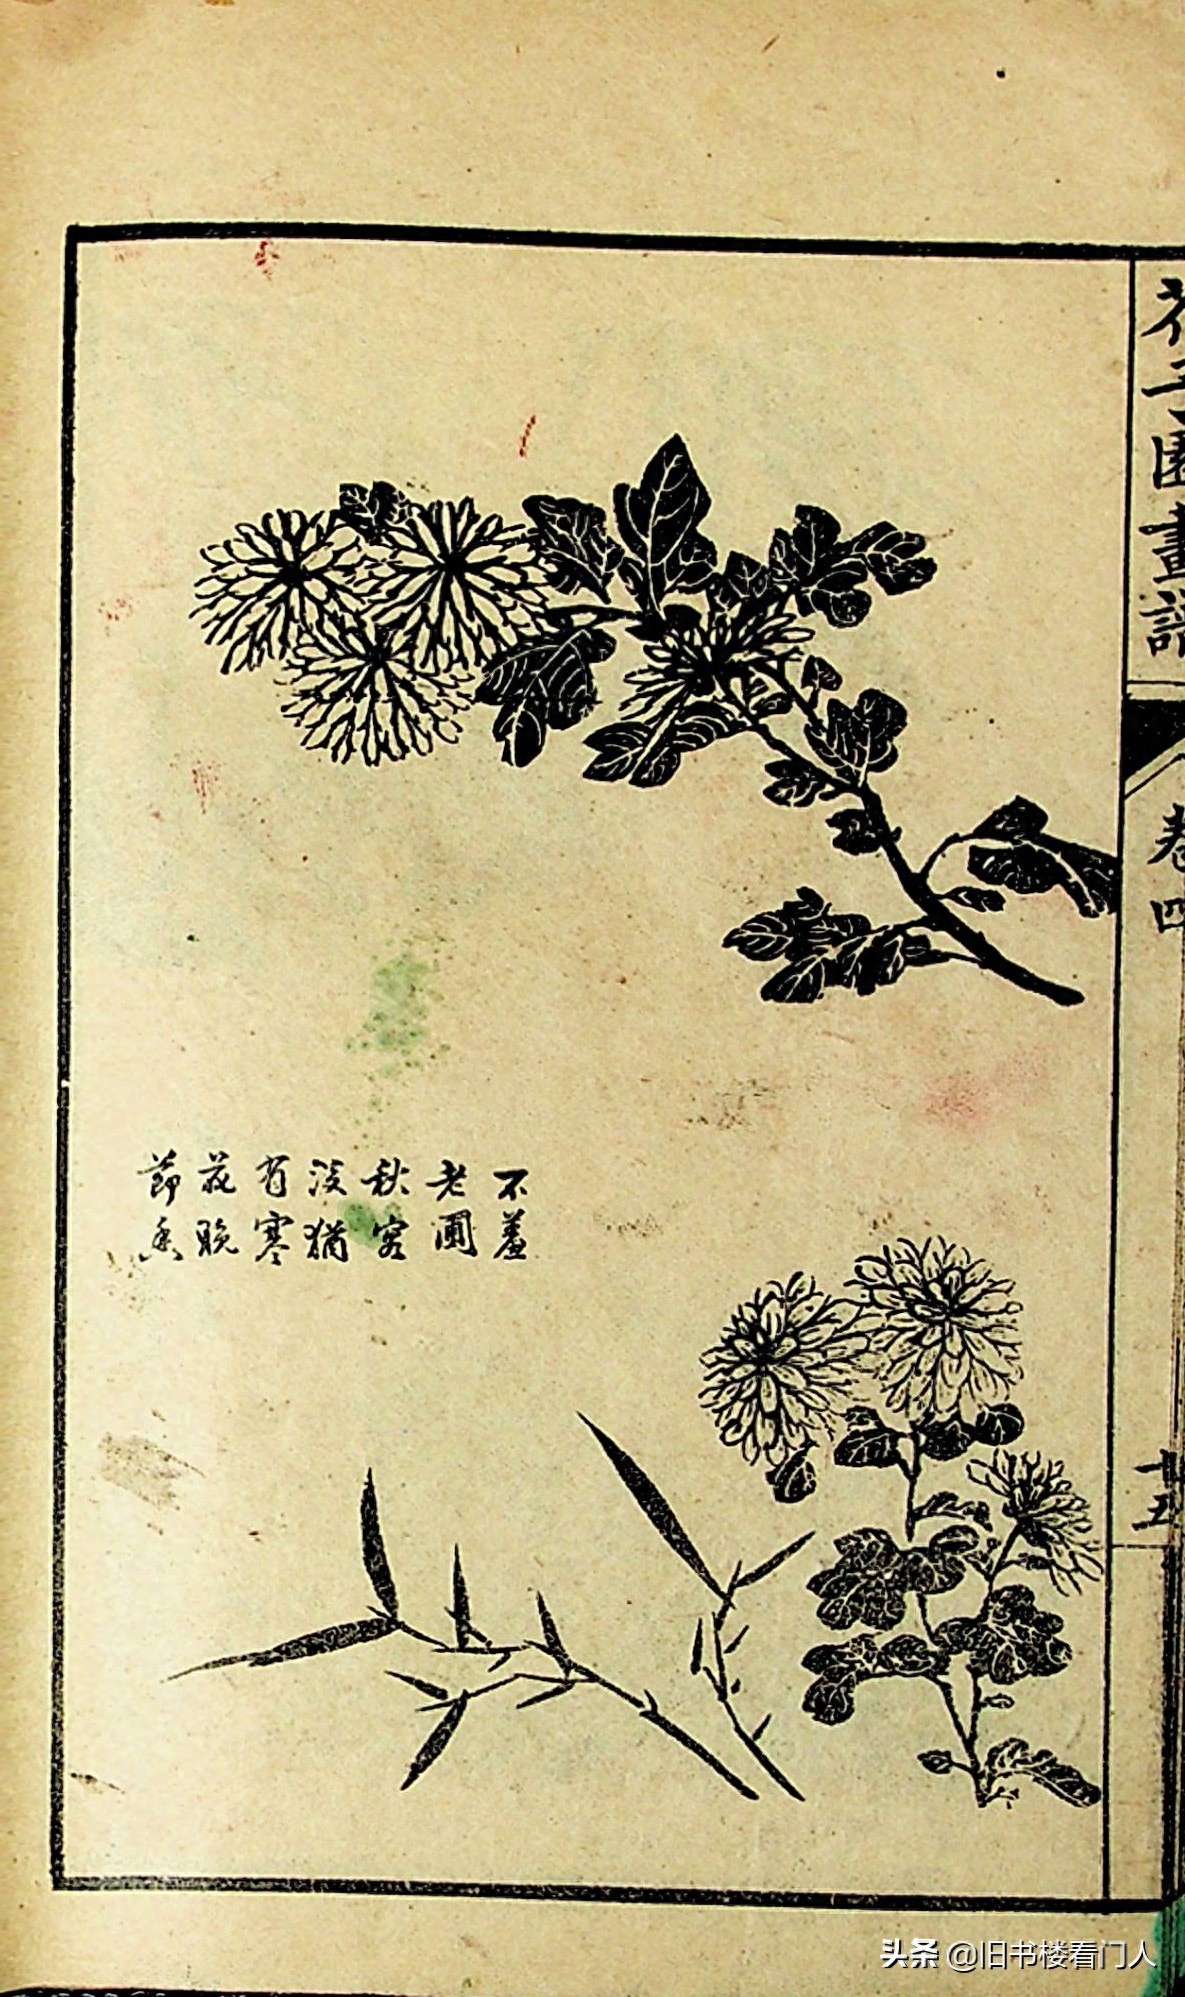 芥子園畫譜
卷四
廿五
不羞
老圃
秋容
淡猶
有寒
花晚
節香
头条 @旧书楼看门人